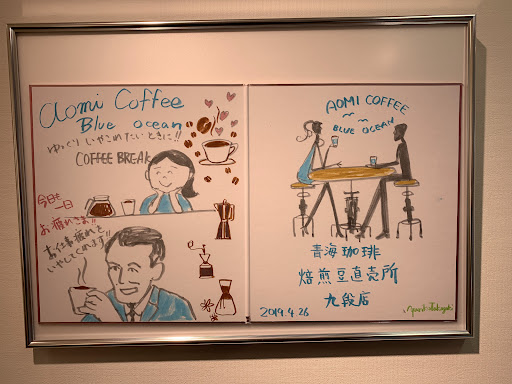 aomi Coffee
Blue ocean
ゆっくり いやされたいときに!!
COFFEE BREAK
今日も
一日
お疲れさま!!
お仕事疲れを
いやしてくれます!!
AOMI COFFEE
BLUE OCEAN
青海 珈琲
焙煎豆直売所
九段店
2019.4.26